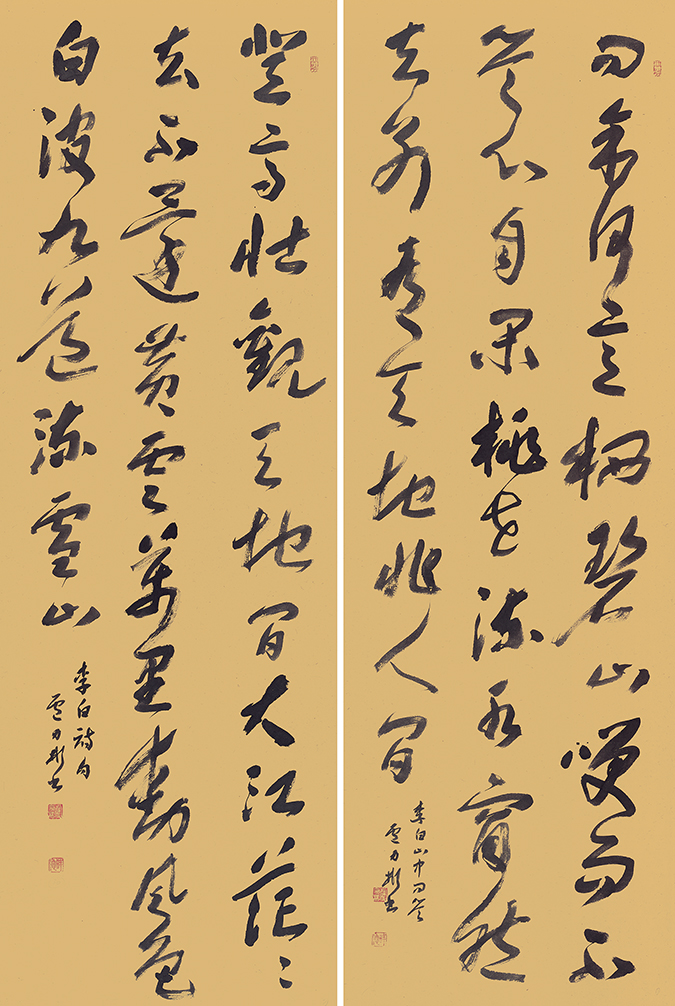 问余何意栖碧山咲而不
答心自闲桃花流水窅然
去别有天地非人间
李白山中问答
登高壮觀天地间大江茫々
去不還黄雲萬里動风色
白波九道流雪山
李白诗句